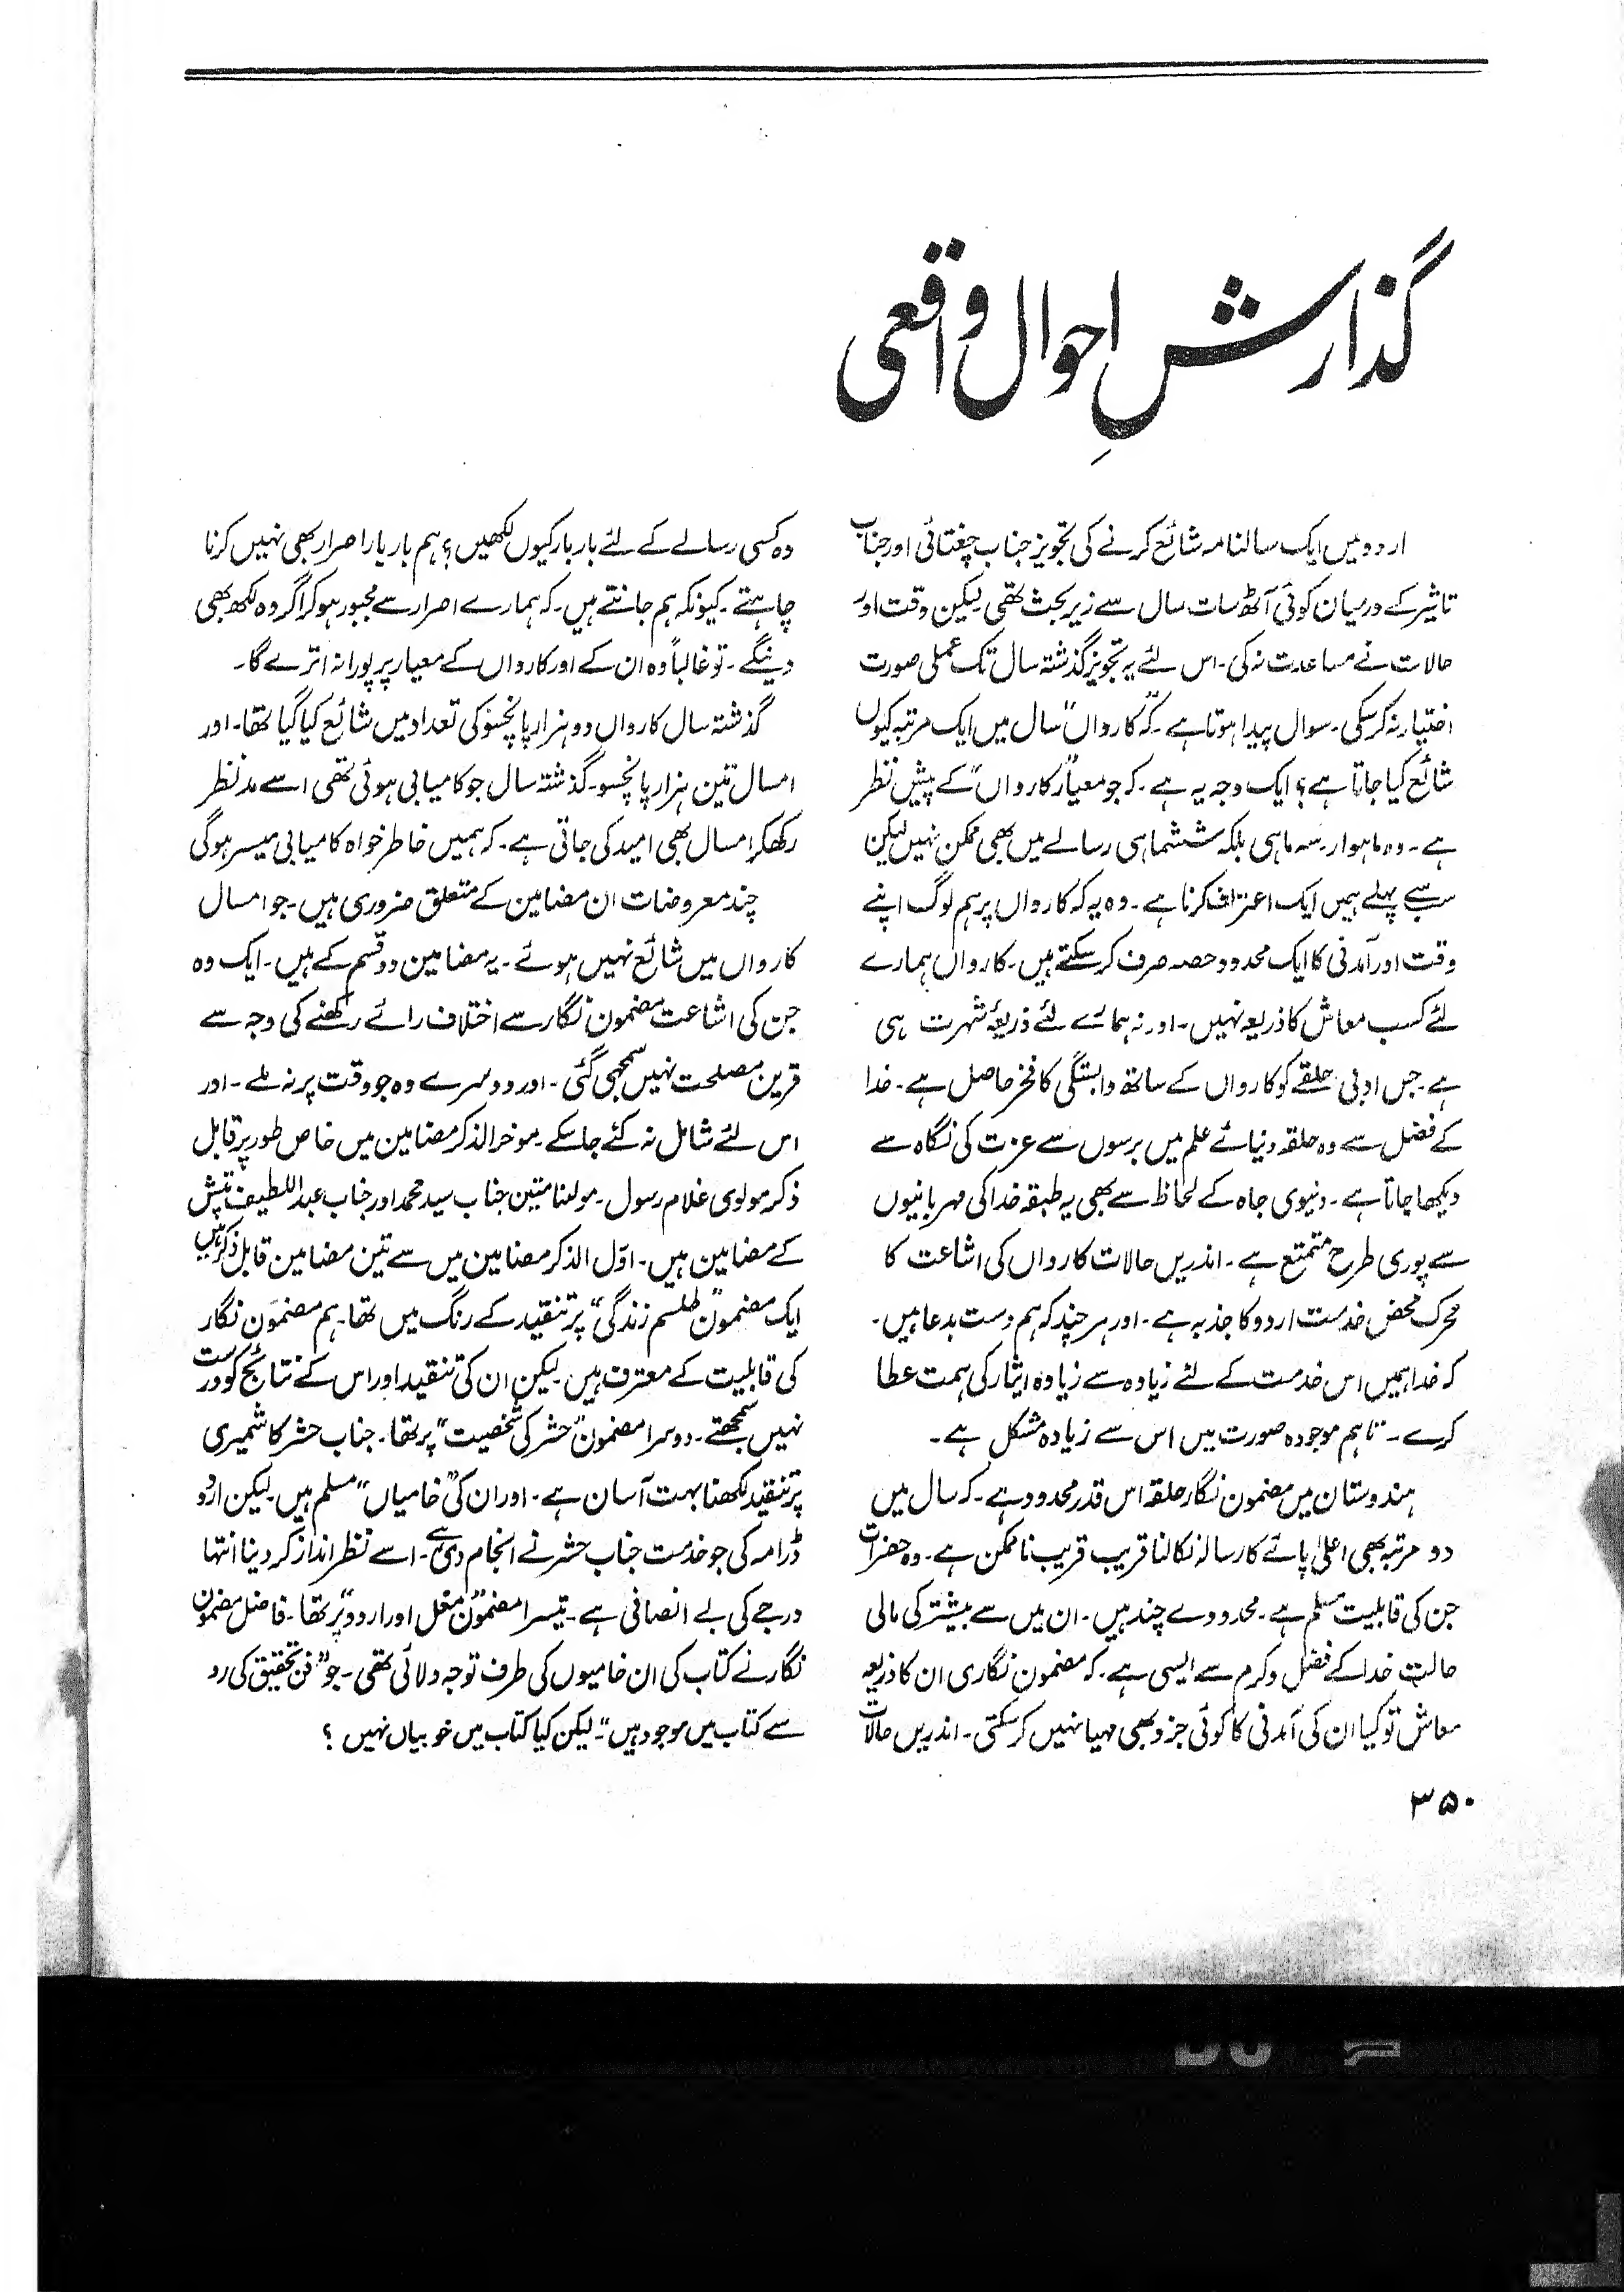 گذارشِ احوال واقعی
اردو میں ایک سالنامہ شائع کرنے کی تجویز جناب چغتائی اور جناب
تاثیر کے درمیان کوئی آٹھ سات سال سے زیر بحث تھی۔ لیکن وقت اور
حالات نے مساعدت نہ کی۔ اس لئے یہ تجویز گذشتہ سال تک عملی صورت
اختیار نہ کر سکی۔ سوال پیدا ہوتا ہے۔ کہ "کارواں" سال میں ایک مرتبہ کیوں
شائع کیا جاتا ہے؟ ایک وجہ یہ ہے۔ کہ جو معیار "کارواں" کے پیش نظر
ہے۔ وہ ماہوار۔ سہ ماہی بلکہ ششماہی رسالے میں بھی ممکن نہیں لیکن
سب سے پہلے ہمیں ایک اعتراف کرنا ہے۔ وہ یہ کہ کارواں پر ہم لوگ اپنے
وقت اور آمدنی کا ایک محدود حصہ صرف کر سکتے ہیں۔ کارواں ہمارے
لئے کسب معاش کا ذریعہ نہیں۔ اور نہ ہمارے لئے ذریعۂ شہرت ہی
ہے۔ جس ادبی حلقے کو کارواں کے ساتھ وابستگی کا فخر حاصل ہے۔ خدا
کے فضل سے وہ حلقہ دنیائے علم میں برسوں سے عزت کی نگاہ سے
دیکھا جاتا ہے۔ دنیوی جاہ کے لحاظ سے بھی یہ طبقہ خدا کی مہربانیوں
سے پوری طرح متمتع ہے۔ اندریں حالات کارواں کی اشاعت کا
محرک محض خدمت اردو کا جذبہ ہے۔ اور ہر چند کہ ہم دست بدعا ہیں۔
کہ خدا ہمیں اس خدمت کے لئے زیادہ سے زیادہ ایثار کی ہمت عطا
کرے۔ تاہم موجودہ صورت میں اس سے زیادہ مشکل ہے۔
ہندوستان میں مضمون نگار حلقہ اس قدر محدود ہے۔ کہ سال میں
دو مرتبہ بھی اعلیٰ پائے کا رسالہ نکالنا قریب قریب ناممکن ہے۔ وہ حضرات
جن کی قابلیت مسلم ہے۔ محدودے چند ہیں۔ ان میں سے بیشتر کی مالی
حالت خدا کے فضل و کرم سے ایسی ہے۔ کہ مضمون نگاری ان کا ذریعہ
معاش تو کیا ان کی آمدنی کا کوئی جزو بھی مہیا نہیں کر سکتی۔ اندریں حالات
وہ کسی رسالے کے لئے بار بار کیوں لکھیں؟ ہم بار بار اصرار بھی نہیں کرنا
چاہتے۔ کیونکہ ہم جانتے ہیں۔ کہ ہمارے اصرار سے مجبور ہو کر اگر وہ لکھ بھی
دینگے۔ تو غالباً وہ ان کے اور کارواں کے معیار پر پورا نہ اترے گا۔
گذشتہ سال کارواں دو ہزار پانچسو کی تعداد میں شائع کیا گیا تھا۔ اور
امسال تین ہزار پانچسو۔ گذشتہ سال جو کامیابی ہوئی تھی اسے مدنظر
رکھکر امسال بھی امید کی جاتی ہے۔ کہ ہمیں خاطر خواہ کامیابی میسر ہوگی
چند معروضات ان مضامین کے متعلق ضروری ہیں۔ جو امسال
کارواں میں شائع نہیں ہوئے۔ یہ مضامین دو قسم کے ہیں۔ ایک وہ
جن کی اشاعت مضمون نگار سے اختلاف رائے رکھنے کی وجہ سے
قرین مصلحت نہیں سمجھی گئی۔ اور دوسرے وہ جو وقت پر نہ ملے۔ اور
اس لئے شامل نہ کئے جا سکے۔ موخرالذکر مضامین میں خاص طور پر قابل
ذکر مولوی غلام رسول۔ مولنا متین جناب سید محمد اور جناب عبداللطیف تپش
کے مضامین ہیں۔ اوّل الذکر مضامین میں سے تین مضامین قابل ذکر ہیں
ایک مضمون "طلسم زندگی" پر تنقید کے رنگ میں تھا۔ ہم مضمون نگار
کی قابلیت کے معترف ہیں۔ لیکن ان کی تنقید اور اس کے نتائج کو درست
نہیں سمجھتے۔ دوسرا مضمون "حشر کی شخصیت" پر تھا۔ جناب حشر کاشمیری
پر تنقید لکھنا بہت آسان ہے۔ اور ان کی "خامیاں" مسلم ہیں۔ لیکن اردو
ڈرامہ کی جو خدمت جناب حشر نے انجام دی ہے۔ اسے نظر انداز کر دینا انتہا
درجے کی بے انصافی ہے۔ تیسرا مضمون "مغل اور اردو" پر تھا۔ فاضل مضمون
نگار نے کتاب کی ان خامیوں کی طرف توجہ دلائی تھی۔ جو "فن تحقیق کی رو
سے کتاب میں موجود ہیں"۔ لیکن کیا کتاب میں خوبیاں نہیں؟
۳۵۰